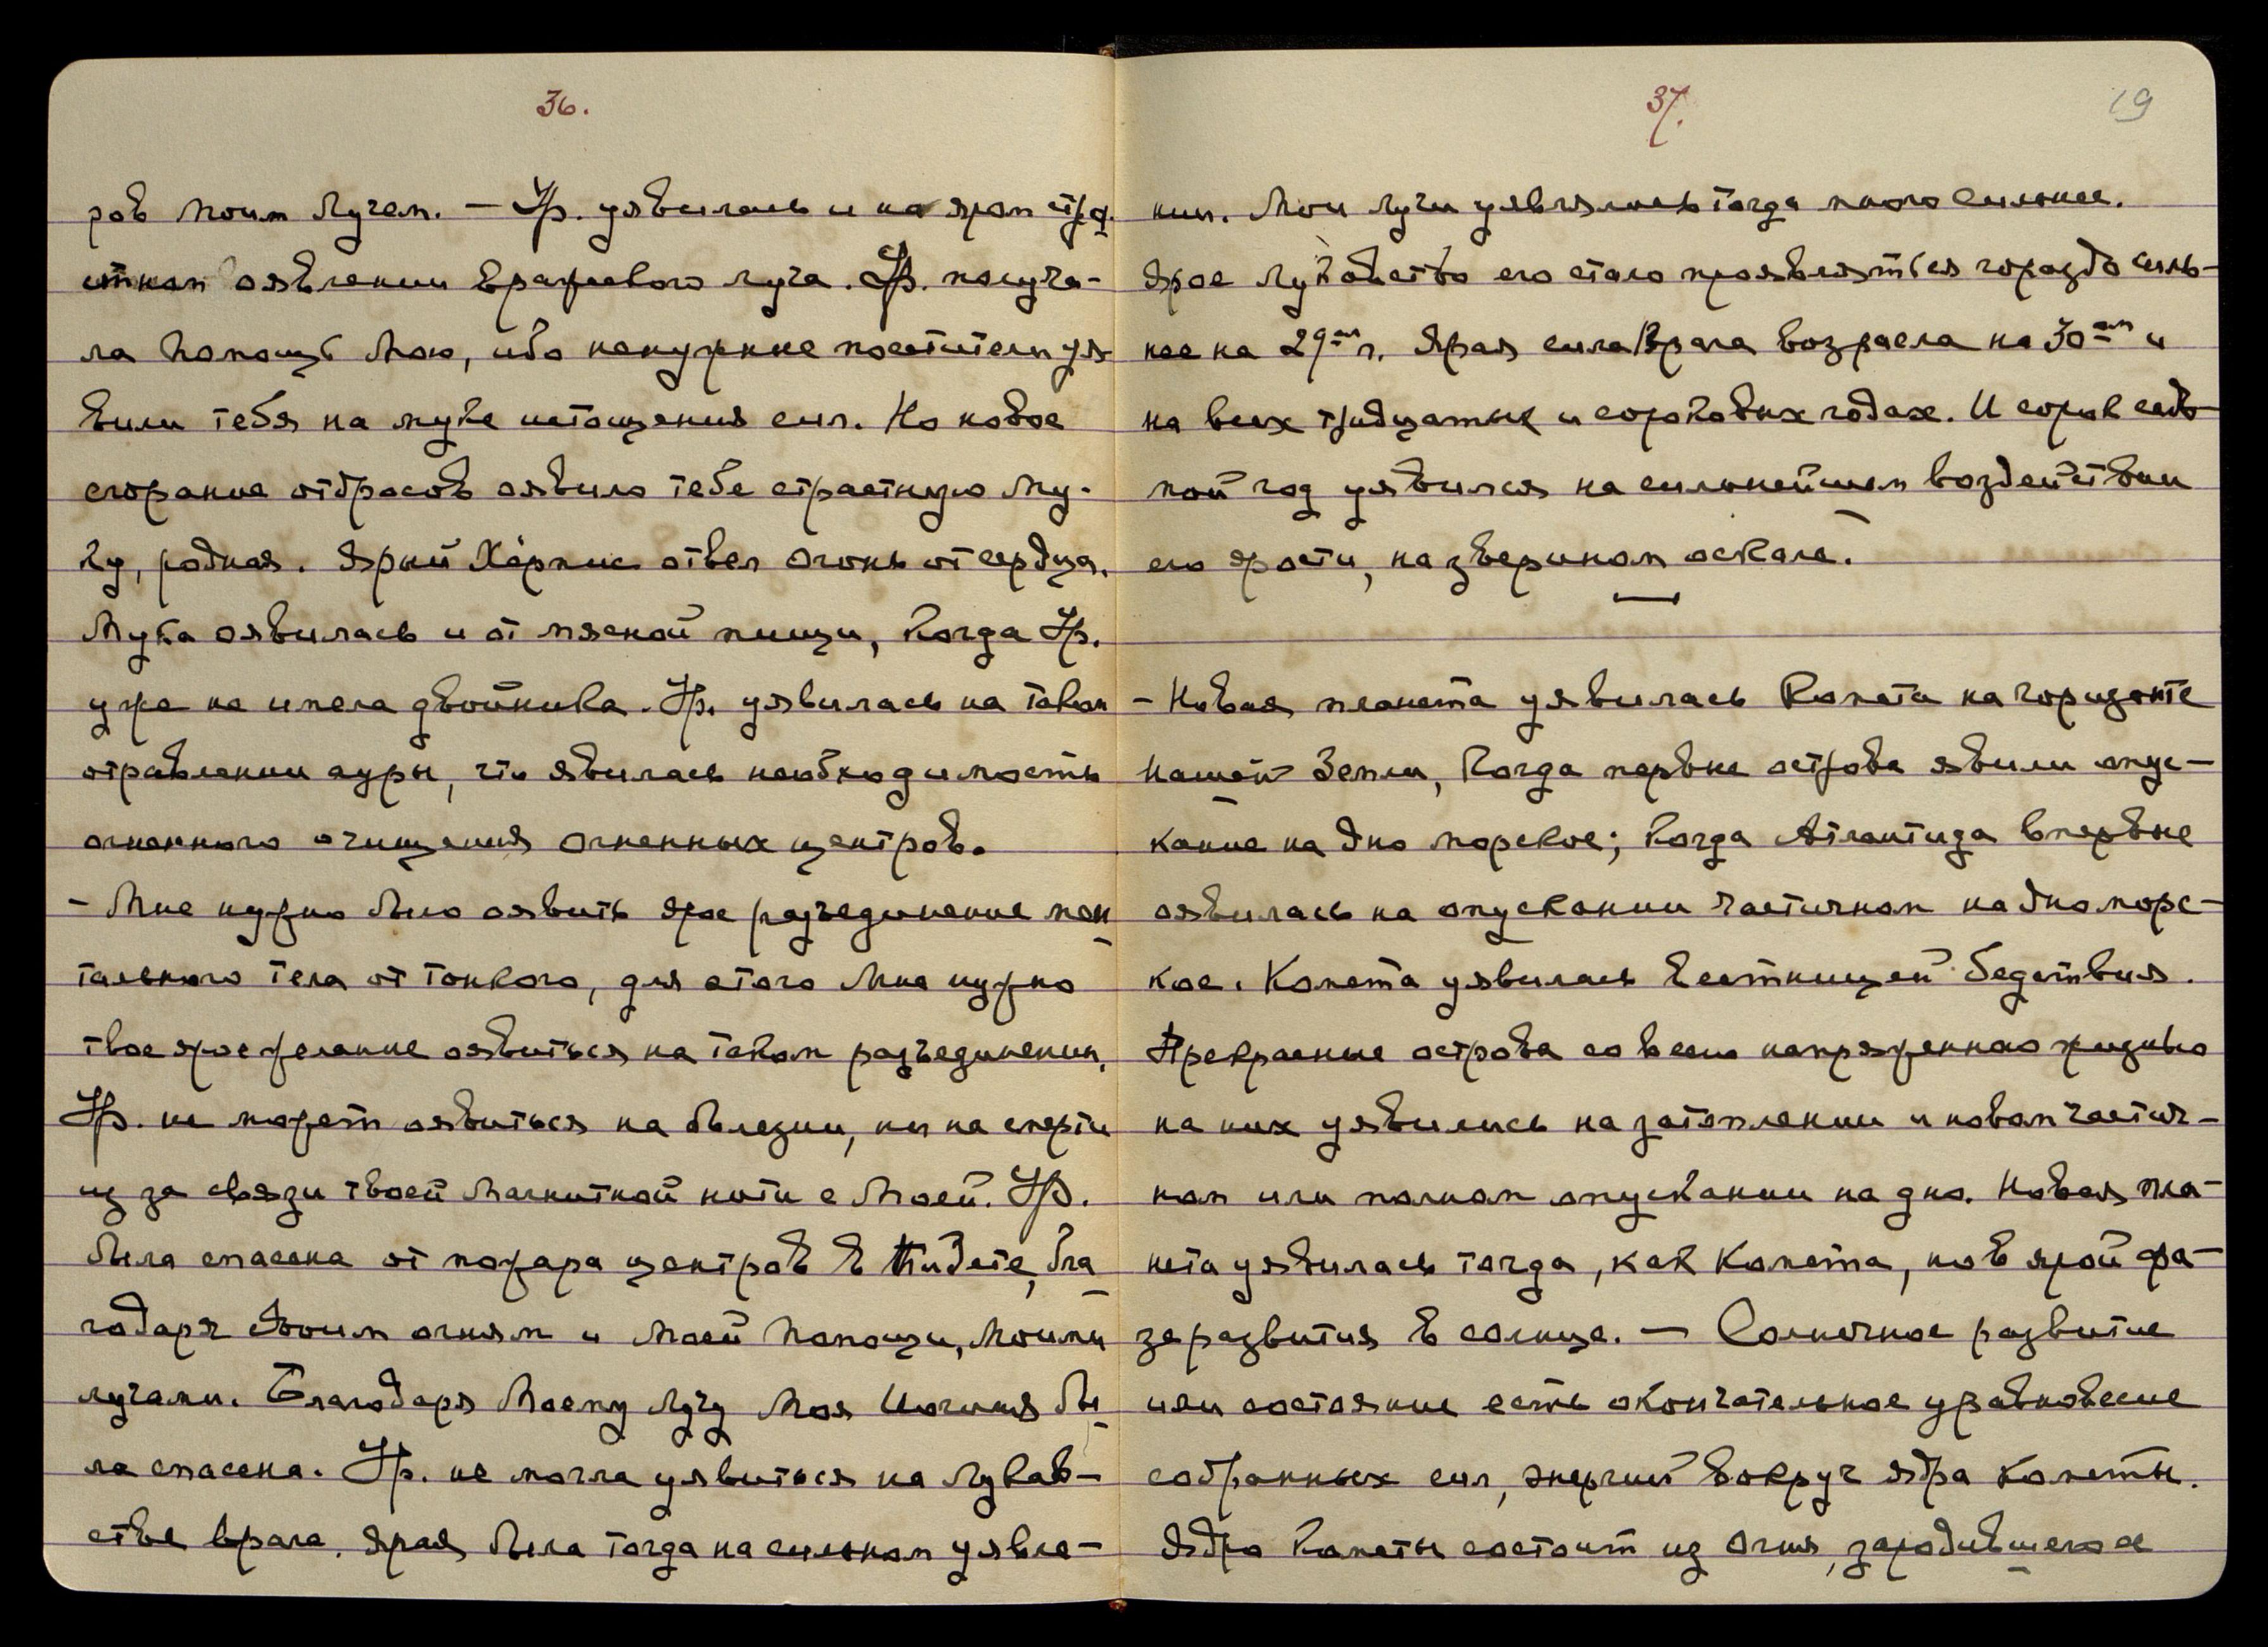 36.
ров Моим Лучем. — Ур. уявилась и на яром стра-
стном оявлении вражеского луча. Ур. получа-
ла Помощь Мою, ибо ненужные посетители уя-
вили тебя на муке истощения сил. Но новое
сгорание отбросов оявило тебе страстную му-
ку, родная. Ярый отвел огонь от сердца.
Мука оявилась и от мясной пищи, когда Ур.
уже не имела двойника. Ур. уявилась на таком
отравлении ауры, что явилась необходимость
огненного очищения огненных центров.
- Мне нужно было оявить ярое разъединение мен
тального тела от тонкого, для этого Мне нужно
твое ярое желание оявиться на таком разъединении.
Ур. не может оявиться на болезни, ни на смерти
из за связи твоей Магнитной нити с Моей. Ур.
была спасена от пожара центров в Тибете, бла
годаря Твоим огням и Моей Помощи, Моими
лучами. Благодаря Моему Лучу Моя Иогиня бы
ла спасена. Ур. не могла уявиться на Лукав-
стве врага. Ярая была тогда на сильном уявле-
37.
19
нии. Мои Лучи уявлялись тогда много сильнее.
Ярое Лукавство его стало проявляться гораздо силь-
нее на 29-ом г. Ярая сила Врага возрасла на 30-ом и
на всех тридцатых и сороковых годах. И сорок седь-
мой год уявился на сильнейшем воздействии
его ярости, на зверином оскале.
- Новая планета уявилась Комета на горизонте
Нашей Земли, когда первые острова явили опус-
кание на дно морское; когда Атлантида впервые
оявилась на опускании частичном на дно морс-
кое. Комета уявилась Вестницей бедствия.
Прекрасные острова со всею напряженною жизнью
на них уявились на затоплении и новом частич-
ном или полном опускании на дно. Новая пла-
нета уявилась тогда, как Комета, но в ярой фа-
зе развития в солнце. — Солнечное развитие
или состояние есть окончательное уравновесие
собранных сил, энергий вокруг ядра кометы.
Ядро Кометы состоит из Огня, зародившегося